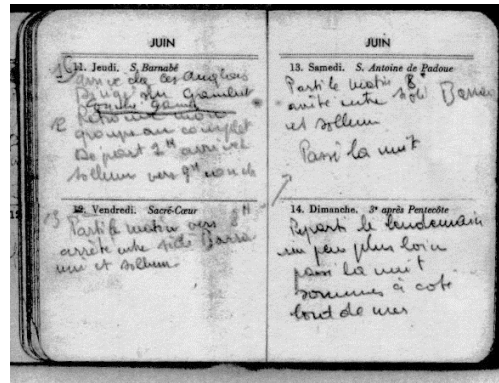 JUIN
11. Jeudi. S. Barnabé
arrivée les anglais
groupe au complet
Départ 2H arrivée
Sollum vers 9H
12. Vendredi. Sacré-Cœur
13 Parti le matin vers 9H
arrête entre Sidi Barra
et Sollum
JUIN
13. Samedi. S. Antoine de Padoue
Parti le matin 8H
arrête entre Sidi Barra
et Sollum
Passé la nuit
14. Dimanche. 3e après Pentecôte
Reparti le lendemain
un peu plus loin
passé la nuit
sommes à coté
bord de mer